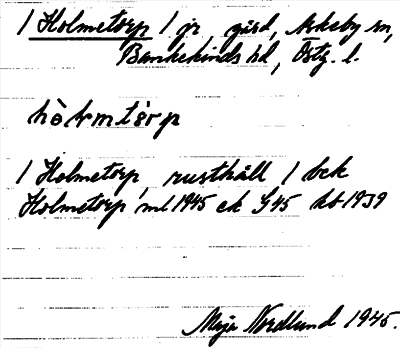 1 Holmetorp 1 jr, gård, Askeby sn,
Bankekinds hd, Östg. l.
hòlrmtòrp
1 Holmetorp, rusthåll 1 bck
Holmetorp ml 1945 ek G45 hb 1939
Maja Nordlund 1945.